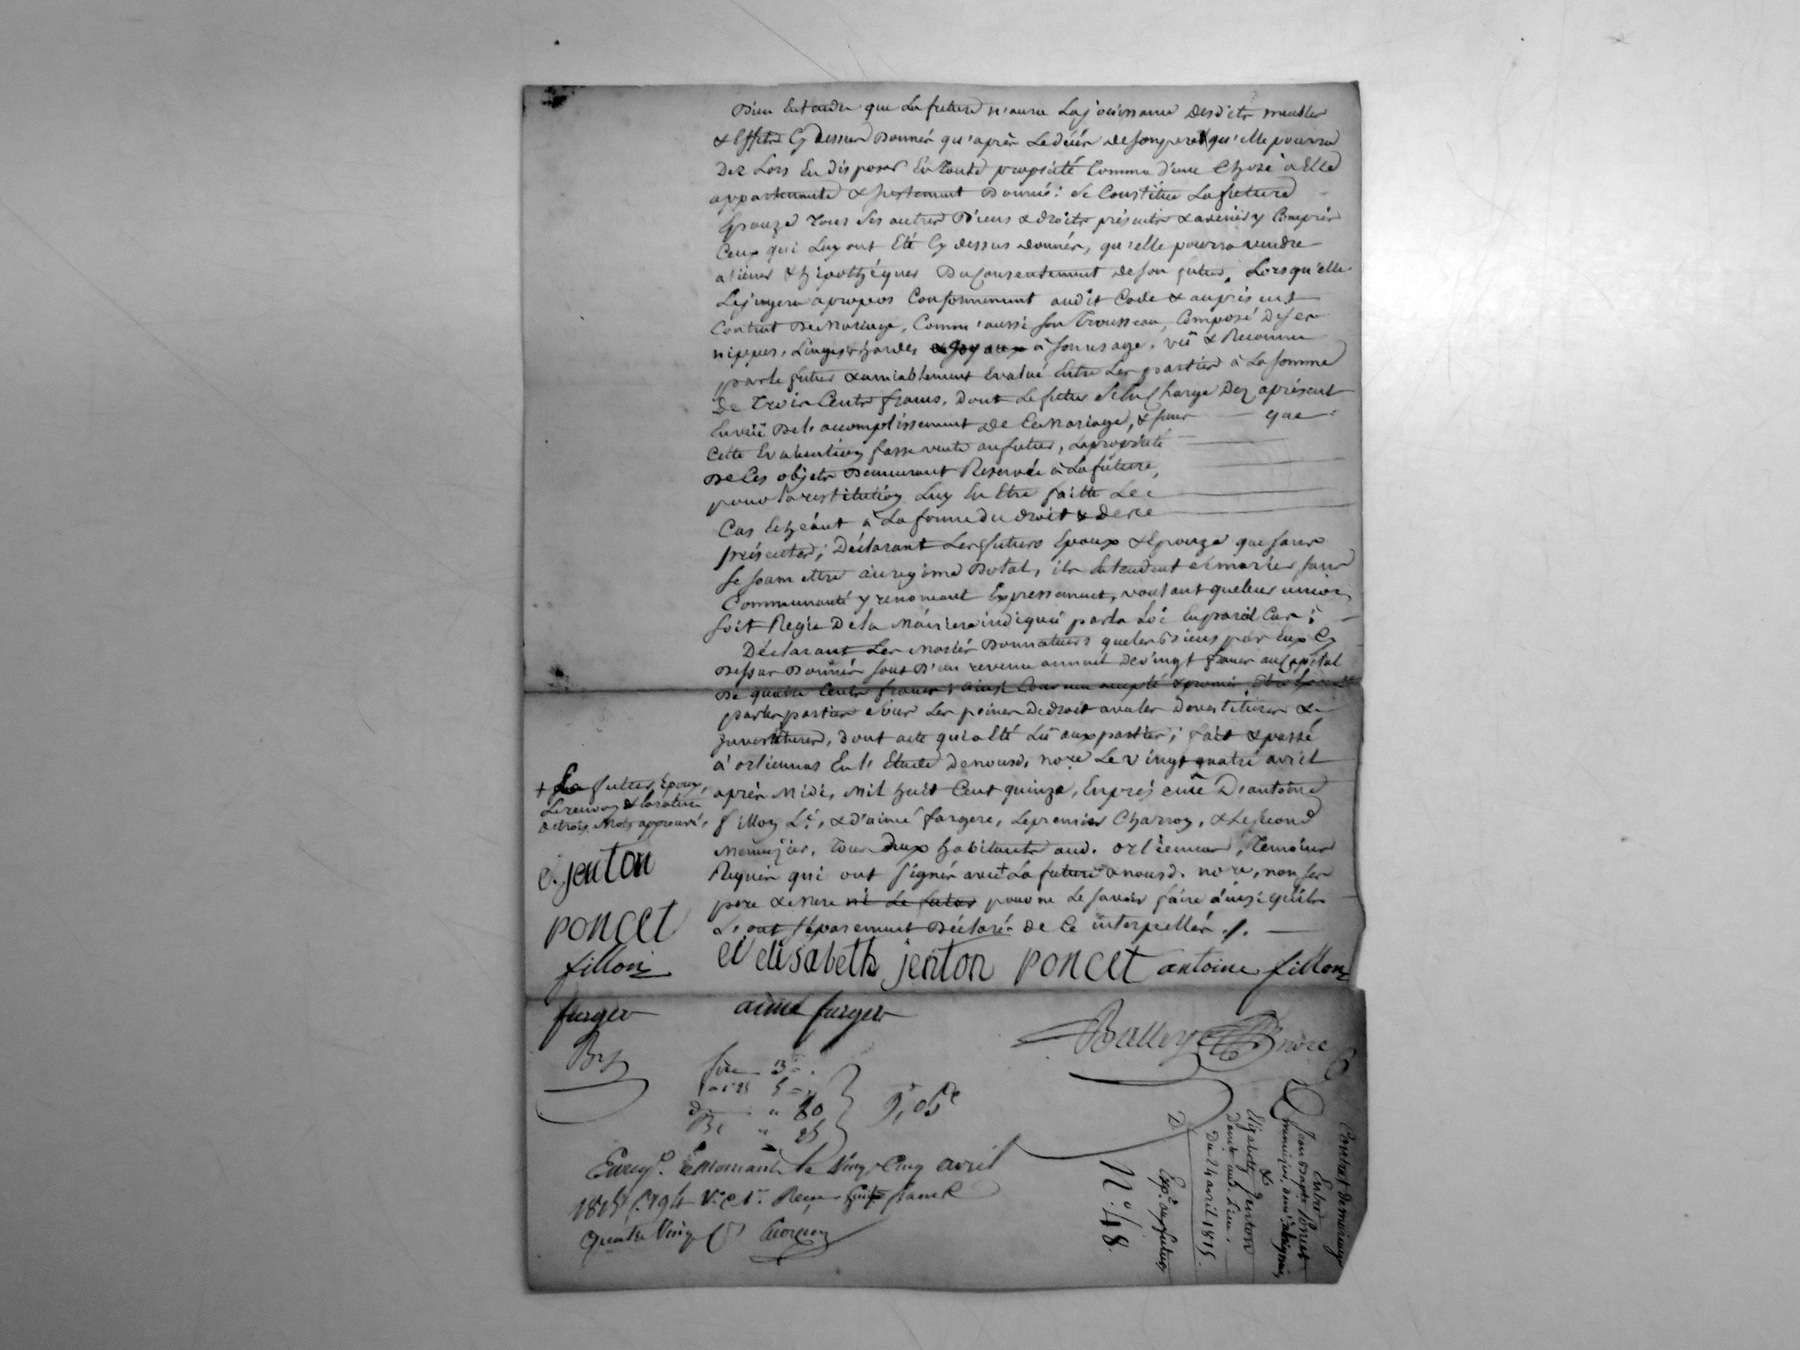 Bien Entendu que La future n'aura La jouissance Desdits meubles
& Effets Cy dessus Donnés qu'après Le décès de son pere & qu'elle pourra
Dez Lors En disposer En toute propriété Comme d'une Chose à Elle
appartenante & justement Donnée: Se Constitue La future
Epouze Tous Ses autres Biens & droits présents & avenir y Compris
Ceux qui Luy ont Eté Cy dessus donnés, qu'elle pourra vendre
aliéner & hipothéquer Du Consentement de son futur, Lorsqu'elle
Lejugera apropos Conformement audit Code & au présent
Contrat De Mariage, Comm'aussi son Trousseau, Composé De ses
nippes, Linges & hardes & joyaux à son usage, vû & Reconnu
par le futur & amiablement Evalué Entre Les parties à La somme
De Trois Cents francs, Dont Le futur se En Charge Dez aprésent
En vüe De l'accomplissement de Ce Mariage, & sans que
Cette Evaluation fasse vente au futur, La propriété
De Ces objets Demeurant Reservée à La future,
pour La restitution Luy En Etre faitte Le
Cas Echéant à La forme du droit & des
présentes; Déclarant Les futurs Epoux & Epouze que sans
se soumettre au regime Dotal, ils Entendent se marier sans
Communauté y renonçant Expressement, voulant que leur union
soit Regie De la Maniere indiquée par la Loi En pareil Cas;
Déclarant Les Mariés Donnateurs que les biens par Eux Cy
Dessus Donnés sont D'un revenu annuel De vingt francs au Capital
De quatre Cents francs; ainsi Convenu accepté & promis
par les parties sous Les peines De droit avec les Devestitures &
Investitures, dont acte qui a Eté Lû aux parties; fait & passé
à orliennas En l'Etude De nousd. nore Le vingt quatre avril
après Midi, Mil huit Cent quinze, En présence D'antoine
fillon & d'aimé fargere, Le premier Charron, & Le second
Menuzier, Tous deux habitants aud. orliennas, Témoins
Requis qui ont signés avec La future & nousd. nore, non ses
pere & mere ni Le futur pour ne Le savoir faire ainsi qu'ils
L'ont séparement Déclaré de Ce interpellés ./.
+ Le futur Epoux,
Le renvoy & La rature
de trois Mots approuvé,
e. jenton
poncet
fillon
furger
By
elisabeth jenton poncet antoine fillon
aimé furger
Balley nore
fixe 3 =
5 =
" 80
" 25
9f, 05c
Enregé. à Mornant le Vingt Cinq avril
1815 f. 194 Vo. c 1re. Reçu huit francs
quatre Vingt
Contrat de mariage
Entre
Jean Bapte. Poncet
&
Elizabeth Jenton
Du 24 avril 1815.
Expe. au futur
No. 48.